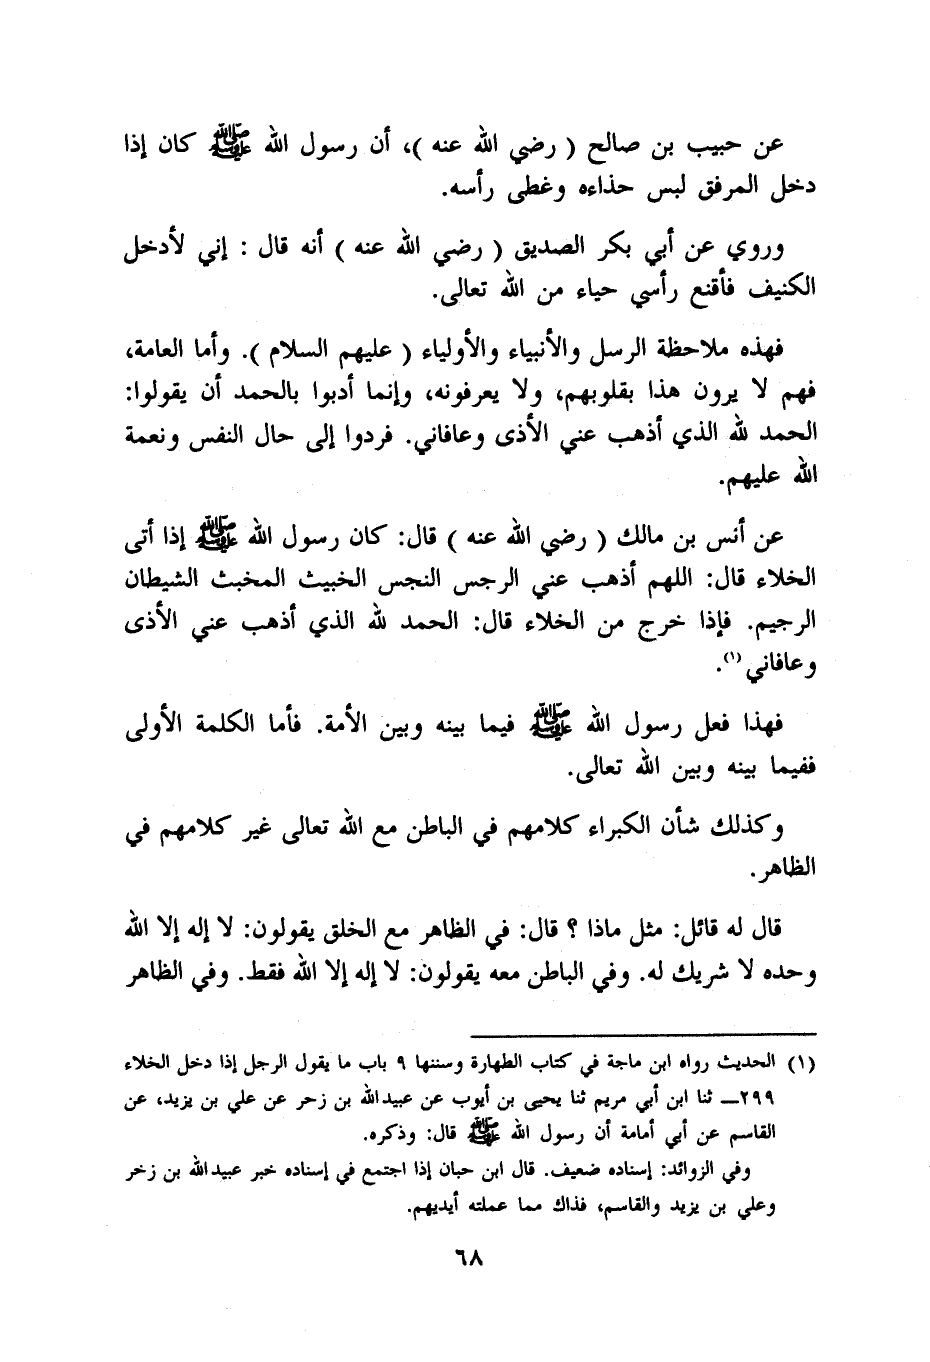 عن حبيب بن صالح ( رضي الله عنه )، أن رسول الله ﷺ كان إذا
دخل المرفق لبس حذاءه وغطى رأسه.
وروي عن أبي بكر الصديق ( رضي الله عنه ) أنه قال : إني لأدخل
الكنيف فأقنع رأسي حياء من الله تعالى.
فهذه ملاحظة الرسل والأنبياء والأولياء ( عليهم السلام ). وأما العامة،
فهم لا يرون هذا بقلوبهم، ولا يعرفونه، وإنما أدبوا بالحمد أن يقولوا:
الحمد لله الذي أذهب عني الأذى وعافاني. فردوا إلى حال النفس ونعمة
الله عليهم.
عن أنس بن مالك ( رضي الله عنه ) قال: كان رسول الله ﷺ إذا أتى
الخلاء قال: اللهم أذهب عني الرجس النجس الخبيث المخبث الشيطان
الرجيم. فإذا خرج من الخلاء قال: الحمد لله الذي أذهب عني الأذى
وعافاني (١).
فهذا فعل رسول الله ﷺ فيما بينه وبين الأمة. فأما الكلمة الأولى
ففيما بينه وبين الله تعالى.
وكذلك شأن الكبراء كلامهم في الباطن مع الله تعالى غير كلامهم في
الظاهر.
قال له قائل: مثل ماذا ؟ قال: في الظاهر مع الخلق يقولون: لا إله إلا الله
وحده لا شريك له. وفي الباطن معه يقولون: لا إله إلا الله فقط. وفي الظاهر
(١) الحديث رواه ابن ماجة في كتاب الطهارة وسننها ٩ باب ما يقول الرجل إذا دخل الخلاء
٢٩٩ـ ثنا ابن أبي مريم ثنا يحيى بن أيوب عن عبيدالله بن زحر عن علي بن يزيد، عن
القاسم عن أبي أمامة أن رسول الله ﷺ قال: وذكره.
وفي الزوائد: إسناده ضعيف. قال ابن حبان إذا اجتمع في إسناده خبر عبيدالله بن زخر
وعلي بن يزيد والقاسم، فذاك مما عملته أيديهم.
٦٨